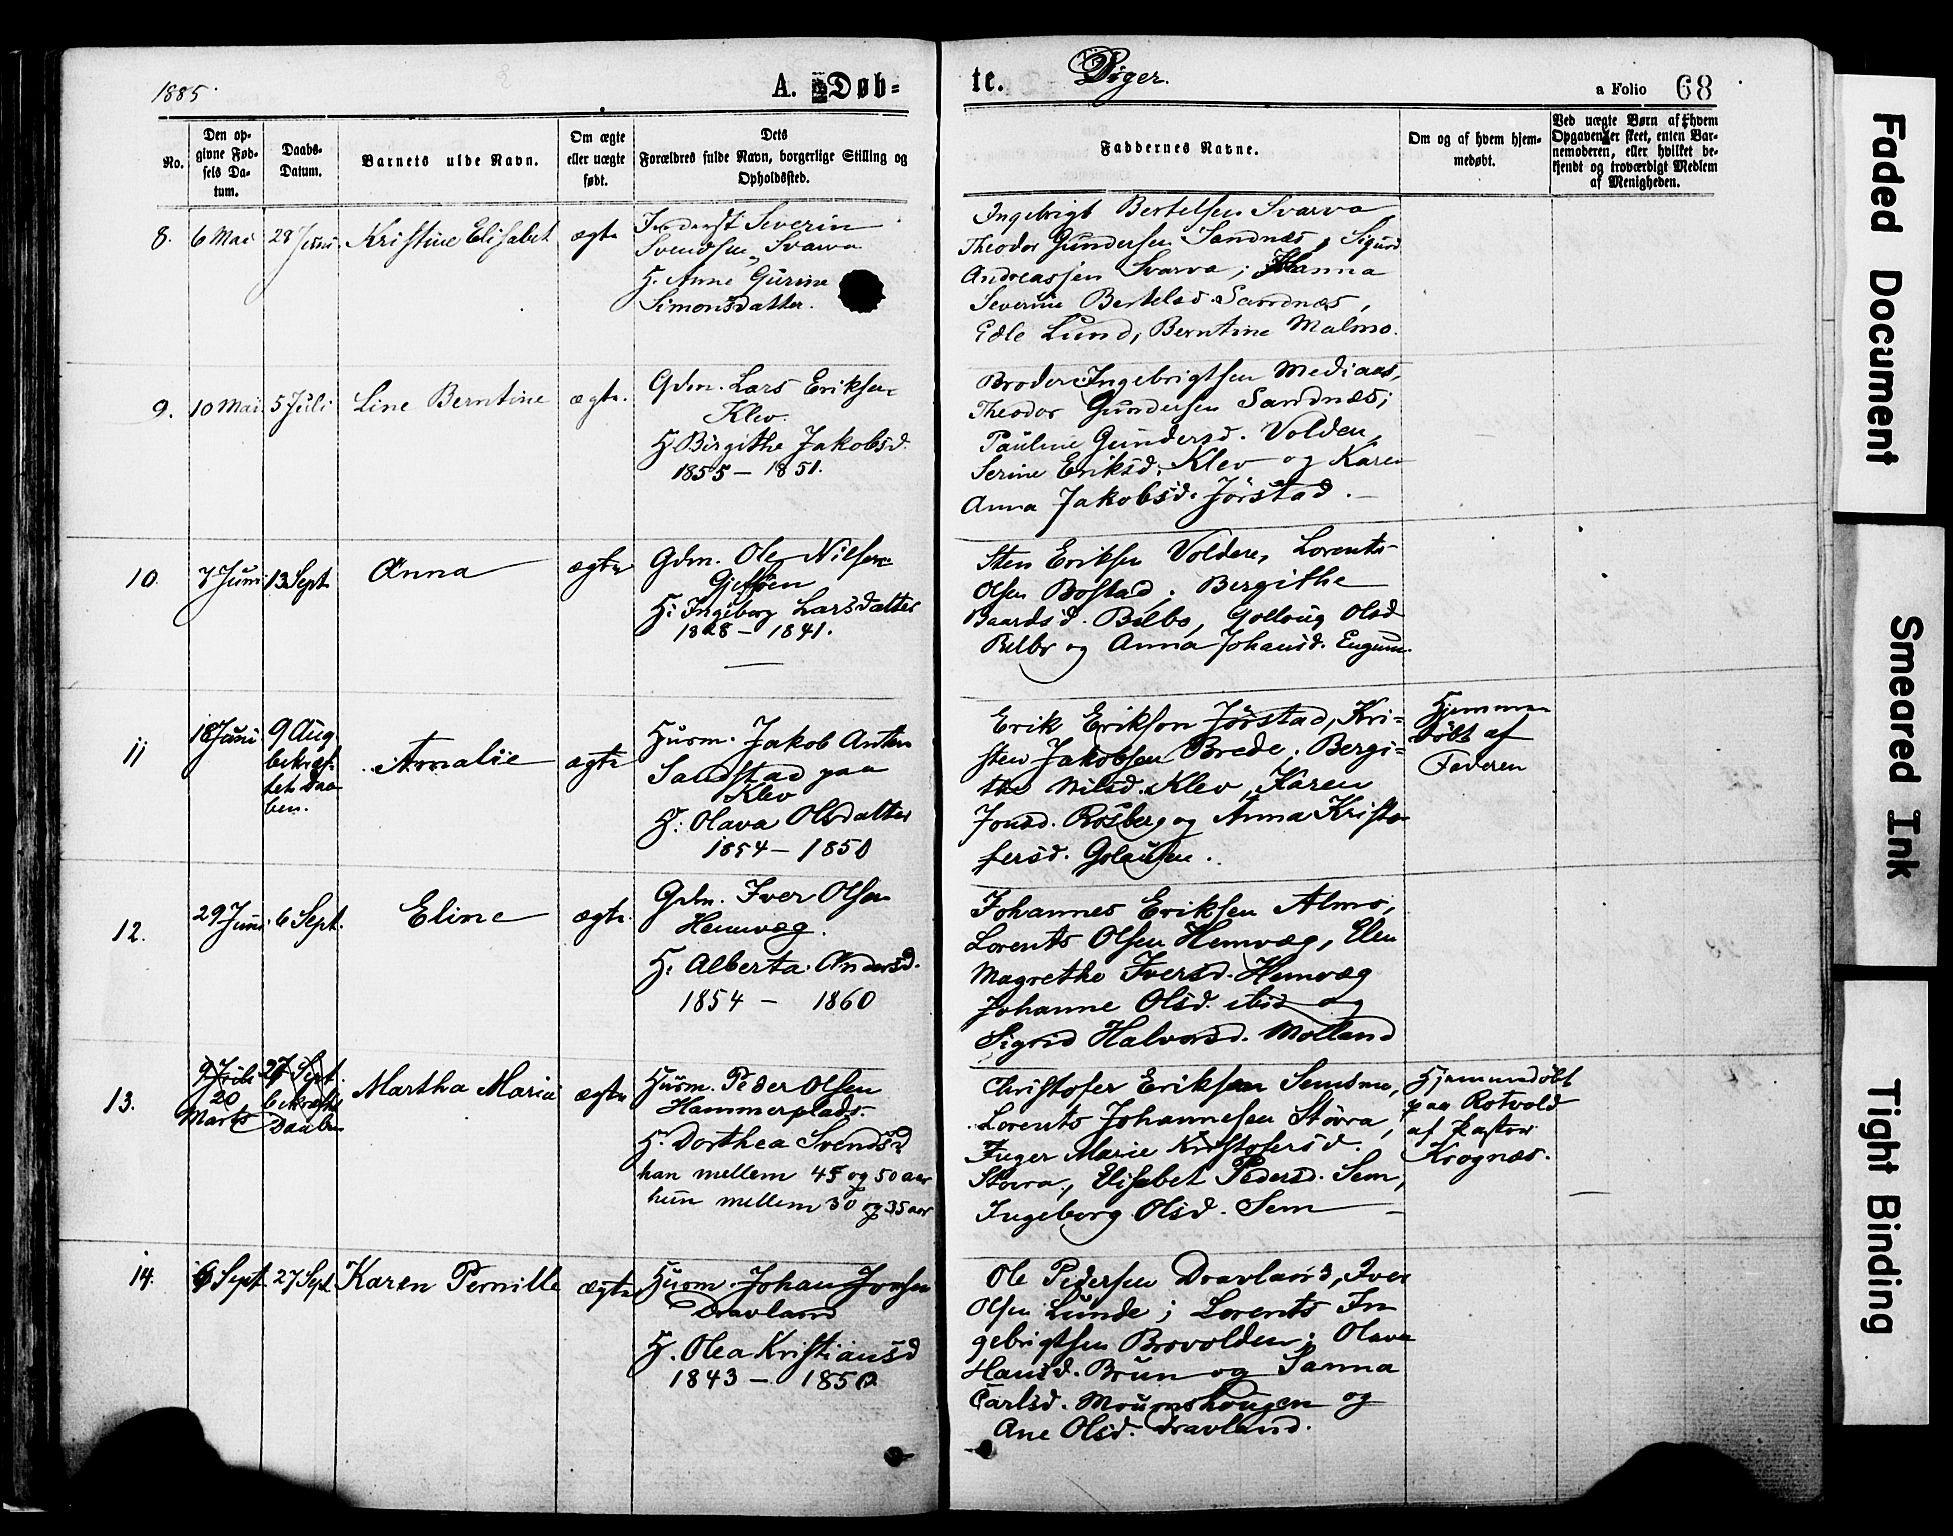 1885.
A. Døb=
te. Piger.
a Folio 68
No.
Den op-
givne Fød-
sels Da-
tum.
Daabs-
Datum.
Barnets ulde Navn.
Om ægte
eller uægte
født.
Dets
Forældres fulde Navn, borgerlige Stilling og
Opholdssted.
Faddernes Navne.
Om og af hvem hjem-
medøbt.
Ved uægte Børn af hvem
Opgaven er skeet, enten Bar-
nemoderen, eller hvilket be-
kjendt og troværdigt Medlem
af Menigheden.
8. 6 Mai 28 Juni Kristine Elisabet ægte
Severin
Svendsen, Svarva
H. Anne Gurine
Simonsdatter.
Ingebrigt Bertelsen Svarva
Theodor Gundersen Sandnæs, Sigurd
Andreassen Svarva; Hanna
Severine Bertelsd. Sandnæs,
Edle Lund, Berntine Malmo.
9. 10 Mai 5 Juli Line Berntine ægte.
Gdm. Lars Eriksen
Klev.
H. Birgithe Jakobsd.
1855 - 1851.
Broder Ingebrigtsen Mediaas,
Theodor Gundersen Sandnæs;
Pauline Gundersd. Volden,
Serine Eriksd. Klev og Karen
Anna Jakobsd. Jørstad.
10. 7 Juni 13 Sept Anna ægte
Gdm. Ole Nilsen
Gjefsøen
H: Ingeborg Larsdatter
1828 - 1841.
Sten Eriksen Volden, Lorents
Olsen Bostad; Bergithe
Baardsd. Belbo, Gollaug Olsd
Belbo og Anna Johansd. Engum.
11 18 Juni 9 Aug.
bekræf-
tet Daa
ben.
Amalie ægte
Husm. Jakob Anton
Sandstad paa
Klev
H: Olava Olsdatter
1854 - 1850
Erik Erikson Jørstad, Kri=
sten Jakobsen Brede; Bergi=
the Nilsd. Klev, Karen
Jonsd. Rosberg og Anna Kristo
fersd. Golausen.
Hjemme
døbt af
Faderen
12. 29 Juni 6 Sept. Eline ægte.
Gdm. Iver Olsen
Hemvæg.
H: Alberta Andersd.
1854 - 1860
Johannes Eriksen Almo,
Lorents Olsen Hemvæg, Elen
Magrethe Iversd. Hemvæg
Johanne Olsd. ibid og
Sigrid Halvorsd. Molland
13. 9 Juli
20
Marts
27 Sept.
bekræftet
Daaben
Martha Maria ægte
Husm. Peder Olsen
Hammerplads.
H. Dorthea Svendsd
han mellem 45 og 50 aar
hun mellem 30 og 35 aar
Christofer Eriksen Semsmo,
Lorents Johannesen Størra,
Inger Marie Kristofersd.
Størra, Elisabet Pedersd. Sem,
Ingeborg Olsd. Sem
Hjemmedøbt
paa Rotvold
af Pastor
Krognæs.
14. 6 Sept. 27 Sept Karen Pernille ægte
Husm. Johan Jonsen
Dravland
H. Olea Kristiansd
1843 - 1850
Ole Pedersen Dravland, Iver
Olsen Lunde; Lorents In
gebrigtsen Brovolden; Olava
Hansd. Brun og Sanna
Carlsd. Mournshougen og
Ane Olsd. Dravland.
Faded Document
Smeared Ink
Tight Binding